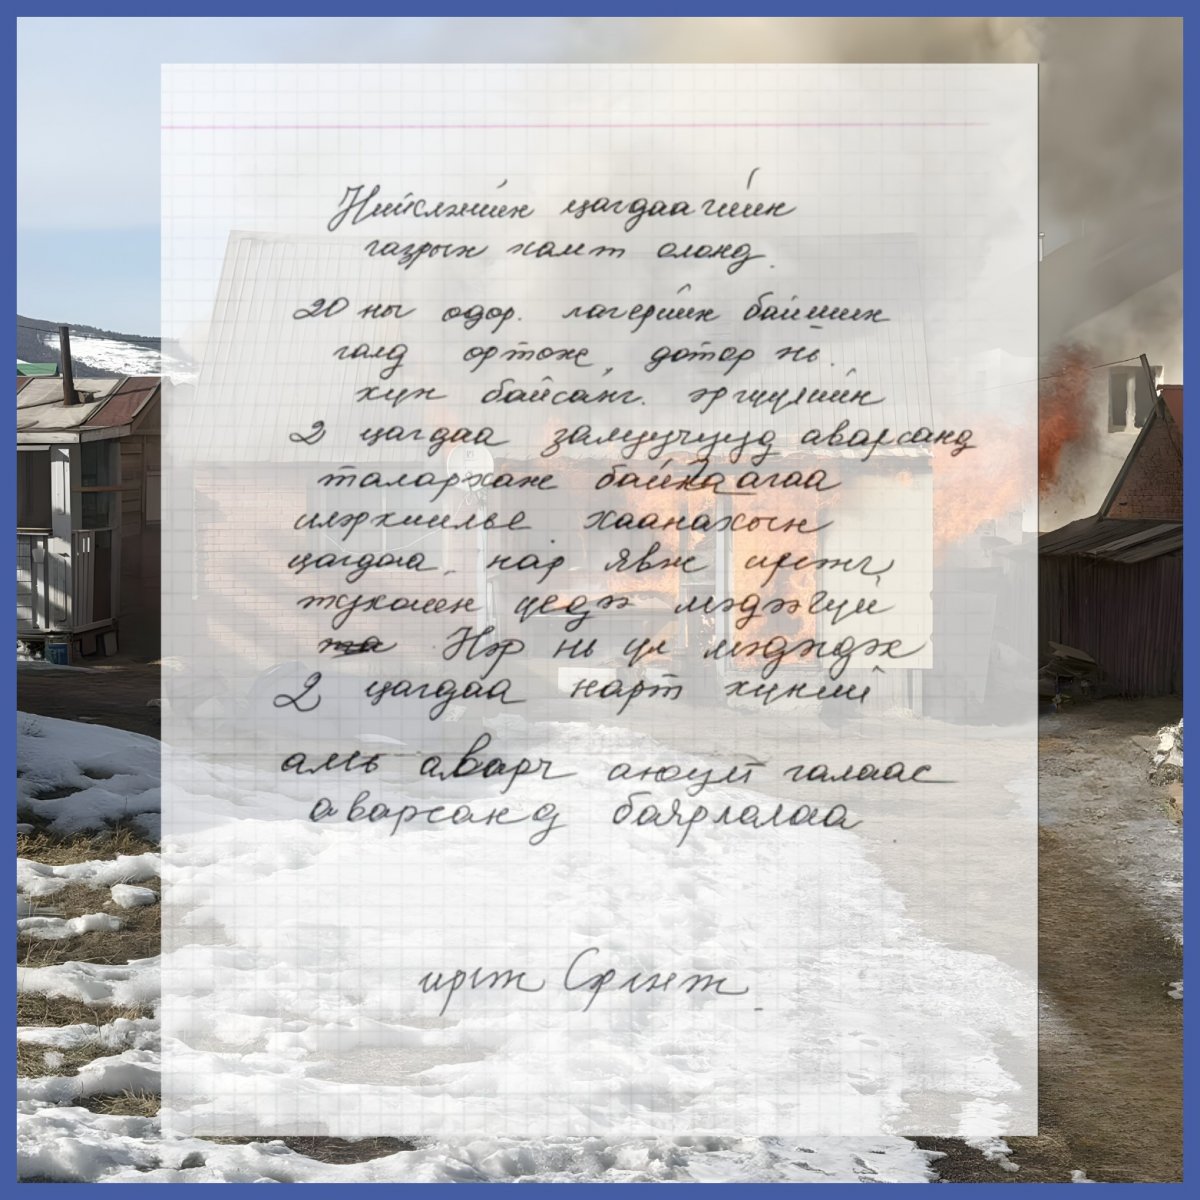 Нийслэлийн цагдаагийн
газрын хамт олонд.
20 ны одор. лагерийн байшин
галд ортож, дотор нь.
хүн байсанг. эргүүлийн
2 цагдаа залуучууд аварсанд
талархаж байнаагаа
илэрхиилье хаанахын
цагдаа нар явж иргэнг,
мэдэхгүй
Нэр нь үл мэдэгдэх
2 цагдаа нарт хүний
амь аварч аюулт галаас
аварсанд баярлалаа
иргэн Срэнж.